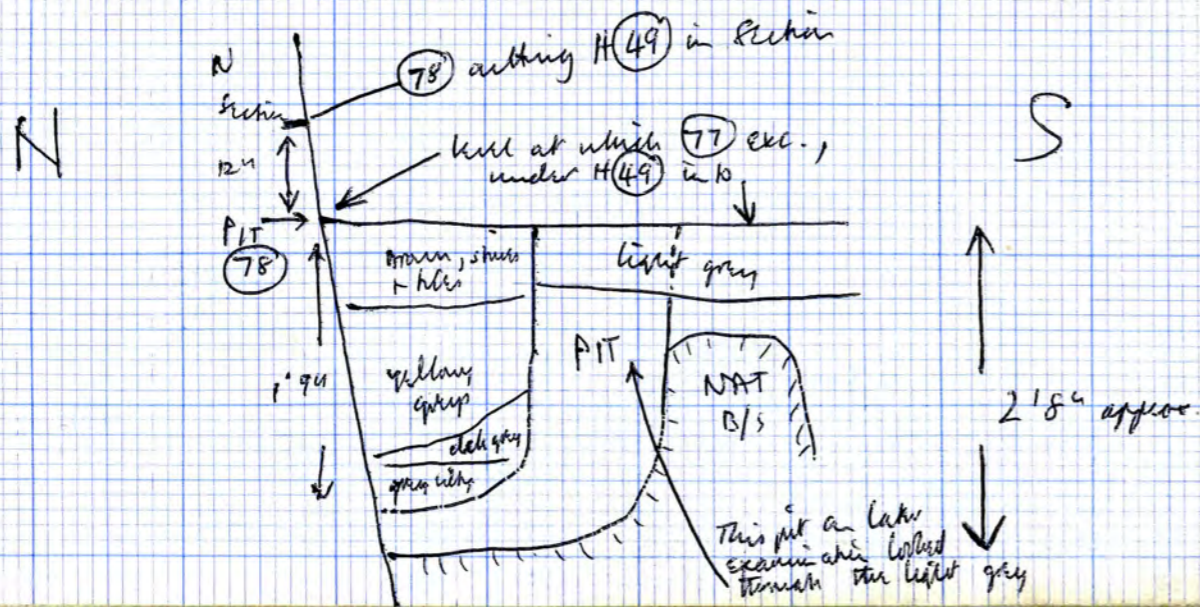 N
Section
N
S
(78) cutting H(49) in Section
12"
level at which (77) exc.,
under H(49) in
PIT
(78)
brown, stones
+ tiles
light grey
1' 9"
yellowy
grey
dark grey
grey silty
PIT
NAT
B/S
2' 8" approx.
This pit on later
examination looked
through the light grey